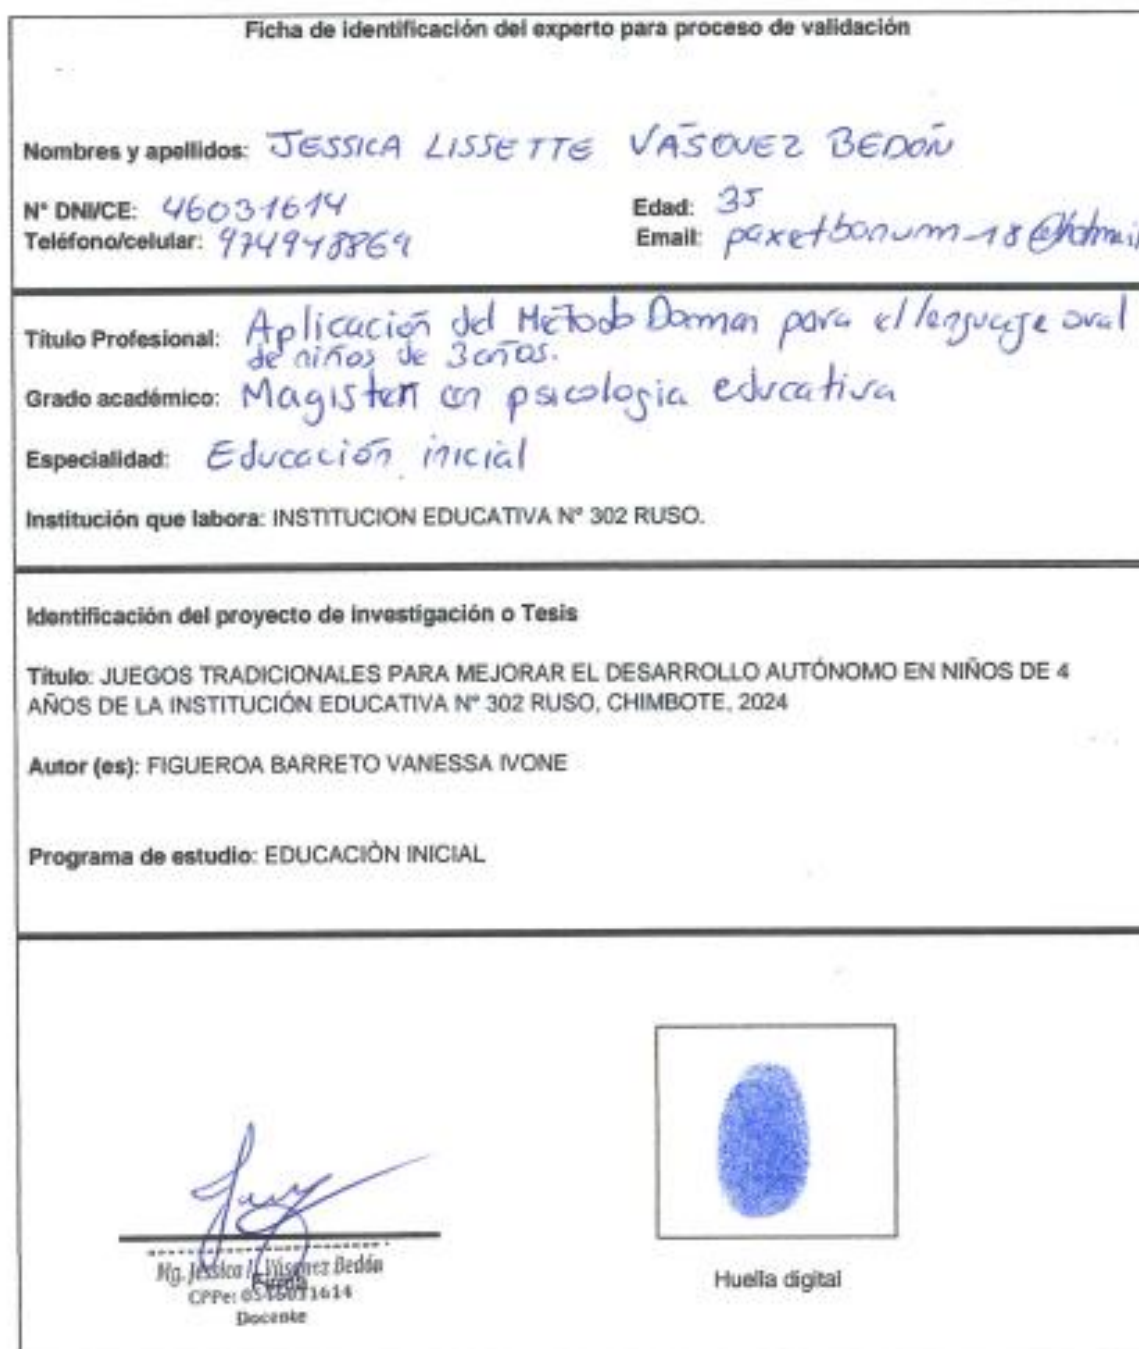 Ficha de identificación del experto para proceso de validación
Nombres y apellidos: JESSICA LISSETTE VÁSQUEZ BEDÓN
N° DNI/CE: 46031614
Edad: 35
Teléfono/celular: 974948869
Email: paxetbonum-18@hotmail
Título Profesional: Aplicación del Método Doman para el lenguaje oral
de niños de 3 años.
Grado académico: Magister en psicologia educativa
Especialidad: Educación inicial
Institución que labora: INSTITUCION EDUCATIVA N° 302 RUSO.
Identificación del proyecto de Investigación o Tesis
Título: JUEGOS TRADICIONALES PARA MEJORAR EL DESARROLLO AUTÓNOMO EN NIÑOS DE 4
AÑOS DE LA INSTITUCIÓN EDUCATIVA N° 302 RUSO, CHIMBOTE, 2024
Autor (es): FIGUEROA BARRETO VANESSA IVONE
Programa de estudio: EDUCACIÓN INICIAL
Mg. Jessica L. Vásquez Bedón
Firma
CPPe: 0546031614
Docente
Huella digital